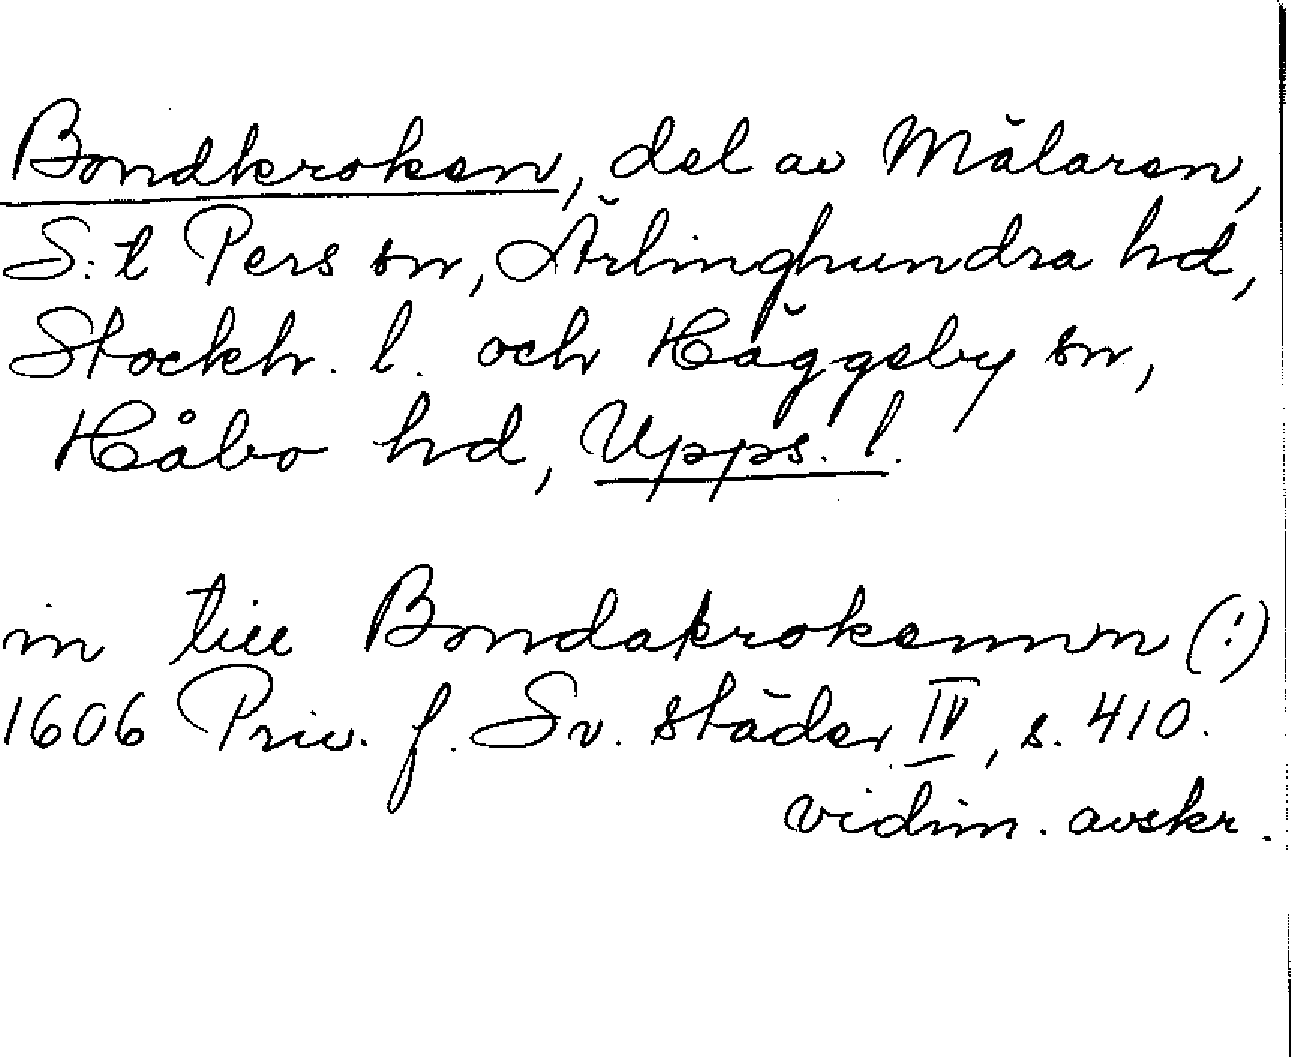 Bondkroken, del av Mälaren,
S:t Pers sn, Ärlinghundra hd,
Stockh. l. och Häggeby sn,
Håbo hd, Upps. l.
in till Bondakrokennm (!)
1606 Priv. f. Sv. städer IV, s. 410.
vidim. avskr.